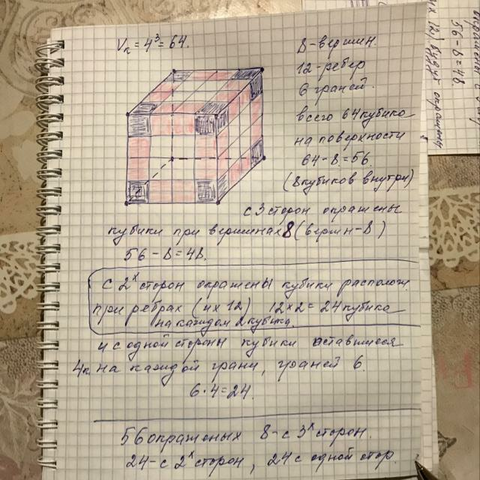 Vк = 4³ = 64.
8-вершин.
12-ребер
6 граней.
всего 64 кубика
на поверхности
64-8=56
(8 кубиков внутри)
с 3 сторон окрашены
кубики при вершинах 8 (вершин-8)
56-8=48.
с 2ˣ сторон окрашены кубики располож
при ребрах (их 12) 12×2=24 кубика
на каждом 2 кубика.
и с одной стороны кубики оставшиеся
4к на каждой грани, граней 6.
6·4=24.
56 окрашеных 8-с 3ˣ сторон.
24-с 2ˣ сторон, 24 с одной стор
56-8=48